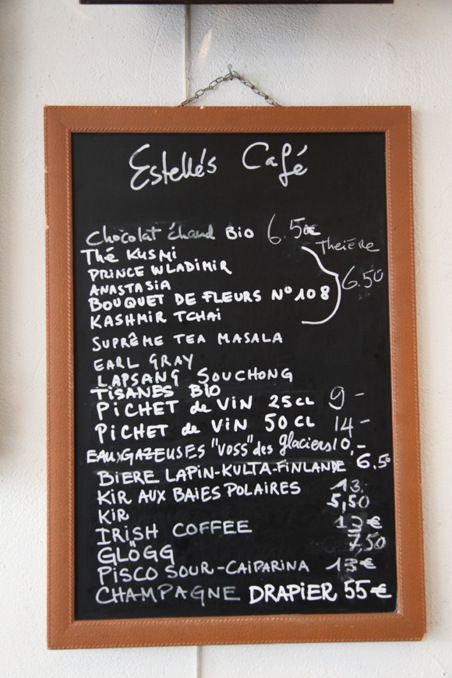 Estelle's Café
Chocolat chaud BIO 6.50€
THÉ KUSMI Theière
PRINCE WLADIMIR
ANASTASIA 6.50
BOUQUET DE FLEURS N° 108
KASHMIR TCHAI
SUPRÊME TEA MASALA
EARL GRAY
LAPSANG SOUCHONG
TISANES BIO
PICHET de VIN 25 CL 9-
PICHET de VIN 50 CL 14-
EAUX GAZEUSES "VOSS" des glaciers 10,-
BIERE LAPIN-KULTA-FINLANDE 6.50
KIR AUX BAIES POLAIRES 13.
KIR 5,50
IRISH COFFEE 13€
GLÖGG 7,50
PISCO SOUR-CAIPARINA 13€
CHAMPAGNE DRAPIER 55€